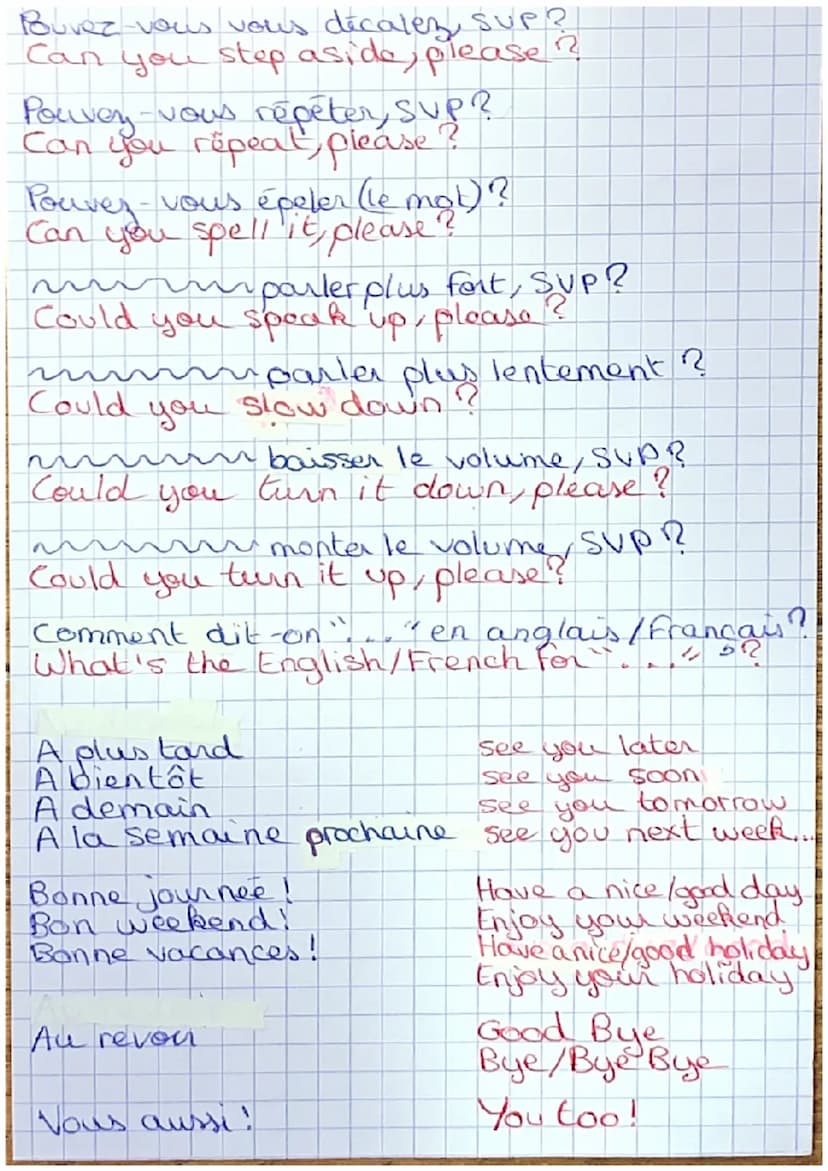 Pouvez-vous vous décalez, SVP?
Can you step aside, please?
Pouvez-vous répéter, SVP?
Can you répeat, please?
Pouvez-vous épeler (le mot)?
Can you spell it, please?
parler plus fort, SVP?
Could you speak up, please?
parler plus lentement?
Could you slow down?
baisser le volume, SVP?
Could you turn it down, please?
monter le volume, SVP?
Could you turn it up, please?
Comment dit-on "..." en anglais/Français?
What's the English/French for "..."?
A plus tard see you later
A bientôt see you soon
A demain see you tomorrow
A la semaine prochaine see you next week...
Bonne journée! Have a nice/good day
Bon weekend! Enjoy your weekend
Bonne vacances! Have a nice/good holiday
Enjoy your holiday
Au revoir Good Bye
Bye/Bye Bye
Vous aussi! You too!